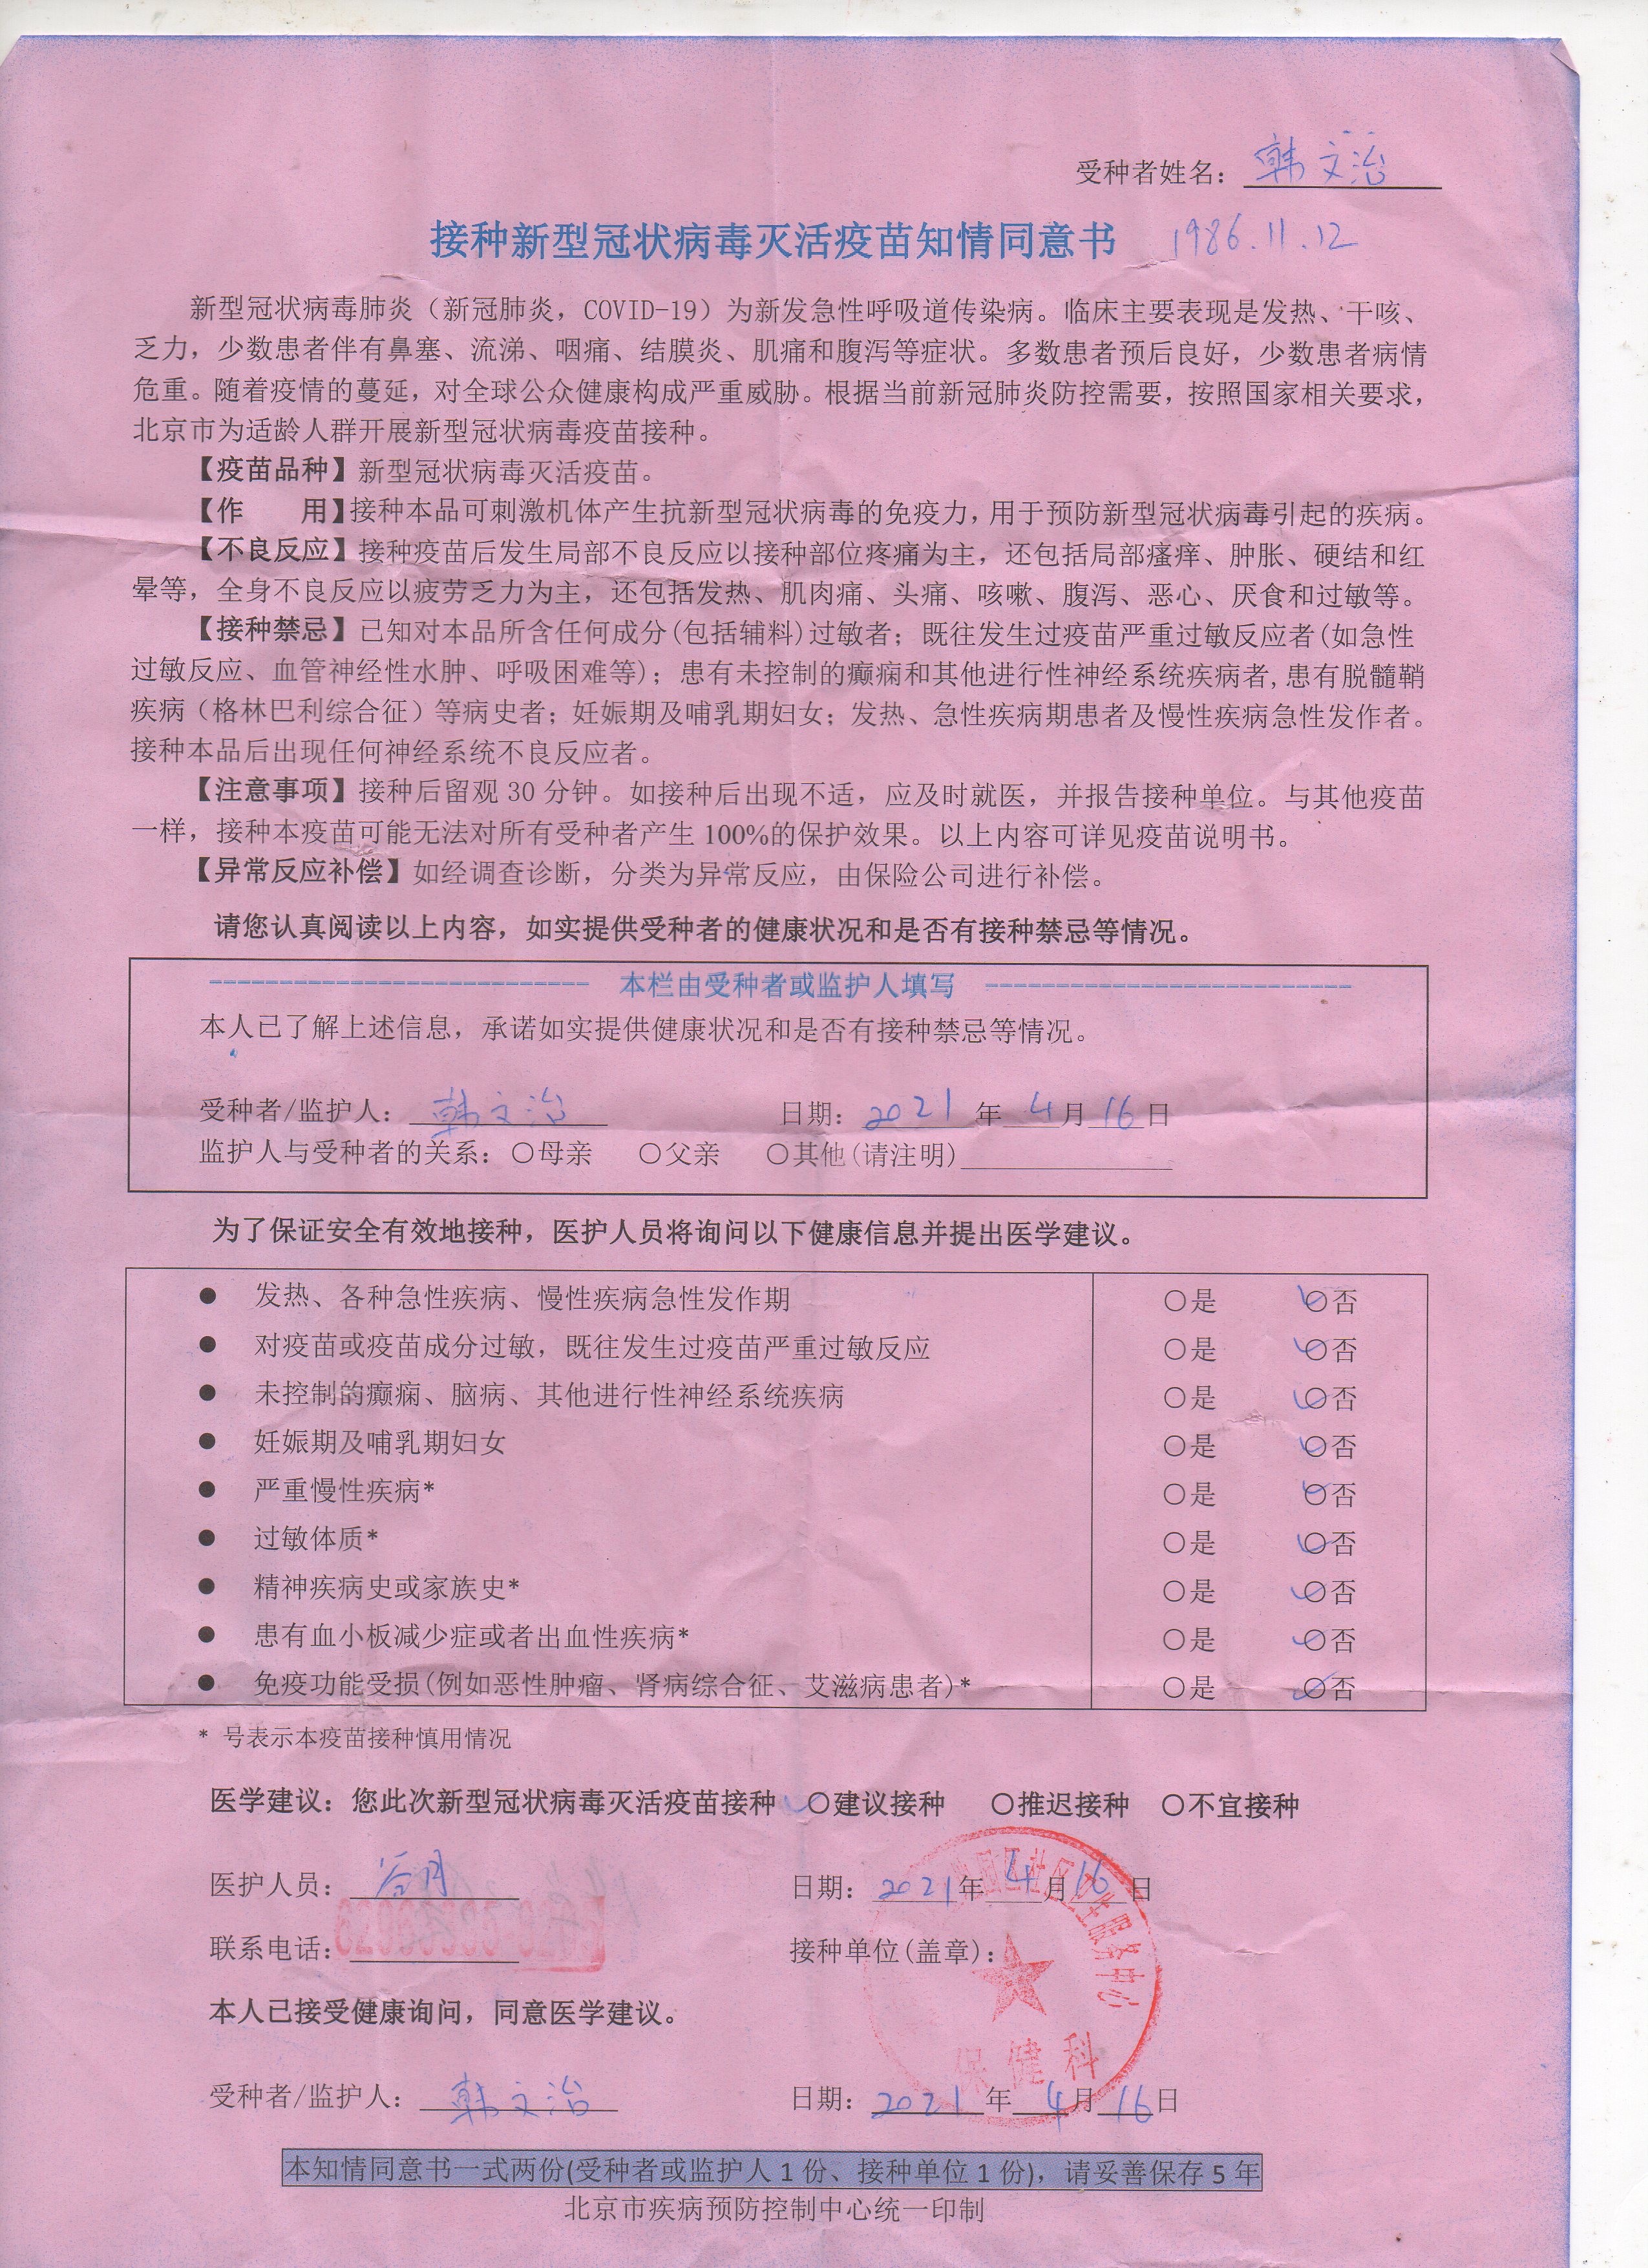 受种者姓名：韩文治
接种新型冠状病毒灭活疫苗知情同意书 1986.11.12
新型冠状病毒肺炎（新冠肺炎，COVID-19）为新发急性呼吸道传染病。临床主要表现是发热、干咳、
乏力，少数患者伴有鼻塞、流涕、咽痛、结膜炎、肌痛和腹泻等症状。多数患者预后良好，少数患者病情
危重。随着疫情的蔓延，对全球公众健康构成严重威胁。根据当前新冠肺炎防控需要，按照国家相关要求，
北京市为适龄人群开展新型冠状病毒疫苗接种。
【疫苗品种】新型冠状病毒灭活疫苗。
【作　　用】接种本品可刺激机体产生抗新型冠状病毒的免疫力，用于预防新型冠状病毒引起的疾病。
【不良反应】接种疫苗后发生局部不良反应以接种部位疼痛为主，还包括局部瘙痒、肿胀、硬结和红
晕等，全身不良反应以疲劳乏力为主，还包括发热、肌肉痛、头痛、咳嗽、腹泻、恶心、厌食和过敏等。
【接种禁忌】已知对本品所含任何成分(包括辅料)过敏者；既往发生过疫苗严重过敏反应者(如急性
过敏反应、血管神经性水肿、呼吸困难等)；患有未控制的癫痫和其他进行性神经系统疾病者,患有脱髓鞘
疾病（格林巴利综合征）等病史者；妊娠期及哺乳期妇女；发热、急性疾病期患者及慢性疾病急性发作者。
接种本品后出现任何神经系统不良反应者。
【注意事项】接种后留观 30 分钟。如接种后出现不适，应及时就医，并报告接种单位。与其他疫苗
一样，接种本疫苗可能无法对所有受种者产生 100%的保护效果。以上内容可详见疫苗说明书。
【异常反应补偿】如经调查诊断，分类为异常反应，由保险公司进行补偿。
请您认真阅读以上内容，如实提供受种者的健康状况和是否有接种禁忌等情况。
本栏由受种者或监护人填写
本人已了解上述信息，承诺如实提供健康状况和是否有接种禁忌等情况。
受种者/监护人：韩文治 日期：2021 年 4 月 16 日
监护人与受种者的关系：○母亲 ○父亲 ○其他(请注明)
为了保证安全有效地接种，医护人员将询问以下健康信息并提出医学建议。
● 发热、各种急性疾病、慢性疾病急性发作期 ○是 ○否
● 对疫苗或疫苗成分过敏，既往发生过疫苗严重过敏反应 ○是 ○否
● 未控制的癫痫、脑病、其他进行性神经系统疾病 ○是 ○否
● 妊娠期及哺乳期妇女 ○是 ○否
● 严重慢性疾病* ○是 ○否
● 过敏体质* ○是 ○否
● 精神疾病史或家族史* ○是 ○否
● 患有血小板减少症或者出血性疾病* ○是 ○否
● 免疫功能受损(例如恶性肿瘤、肾病综合征、艾滋病患者)* ○是 ○否
* 号表示本疫苗接种慎用情况
医学建议：您此次新型冠状病毒灭活疫苗接种 ○建议接种 ○推迟接种 ○不宜接种
医护人员：谷月 日期：2021 年 4 月 16 日
联系电话： 接种单位(盖章)：
服务中心
保健科
本人已接受健康询问，同意医学建议。
受种者/监护人：韩文治 日期：2021 年 4 月 16 日
本知情同意书一式两份(受种者或监护人 1 份、接种单位 1 份)，请妥善保存 5 年
北京市疾病预防控制中心统一印制